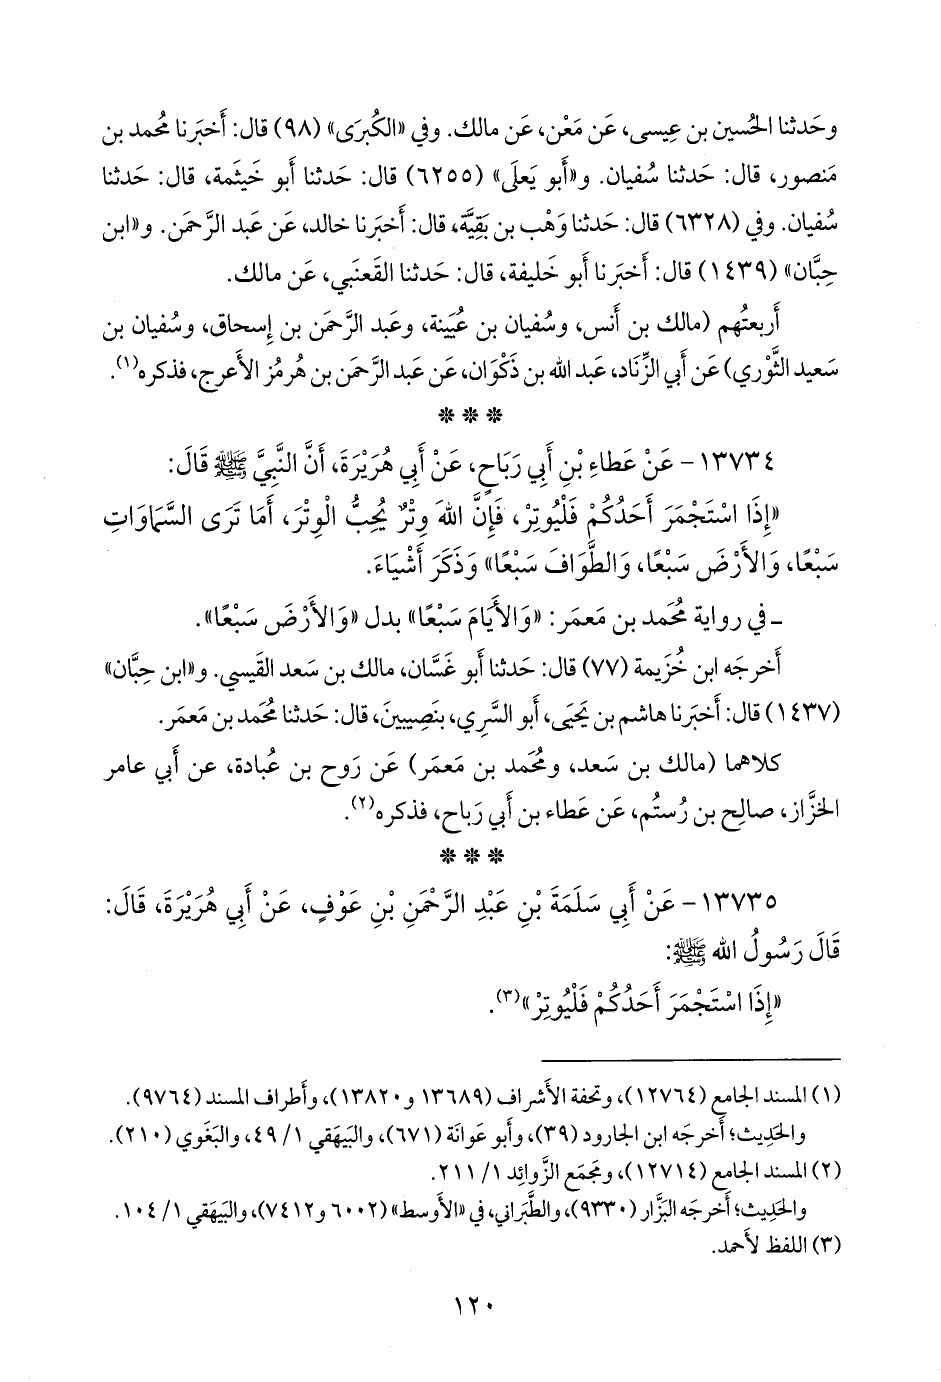 وحَدثنا الحُسين بن عِيسى، عَن مَعْن، عَن مالك. وفي «الكُبرَى» (٩٨) قال: أَخبَرنا مُحمد بن
مَنصور، قال: حَدثنا سُفيان. و«أَبو يَعلَى» (٦٢٥٥) قال: حَدثنا أَبو خَيثَمة، قال: حَدثنا
سُفيان. وفي (٦٣٢٨) قال: حَدثنا وَهْب بن بَقِيَّة، قال: أَخبَرنا خالد، عَن عَبد الرَّحمَن. و«ابن
حِبَّان» (١٤٣٩) قال: أَخبَرنا أَبو خَليفة، قال: حَدثنا القَعنَبي، عَن مالك.
أَربعتُهم (مالك بن أَنس، وسُفيان بن عُيَينة، وعَبد الرَّحمَن بن إِسحاق، وسُفيان بن
سَعيد الثَّوْري) عَن أَبي الزِّنَاد، عَبد الله بن ذَكْوَان، عَن عَبد الرَّحمَن بن هُرمُز الأَعرج، فذكره(١).
* * *
١٣٧٣٤- عَنْ عَطاءِ بْنِ أَبِي رَبَاحٍ، عَنْ أَبِي هُرَيْرَةَ، أَنَّ النَّبِيَّ ﷺ قَالَ:
«إِذَا اسْتَجْمَرَ أَحَدُكُمْ فَلْيُوتِرْ، فَإِنَّ اللهَ وِتْرٌ يُحِبُّ الْوِتْرَ، أَمَا تَرَى السَّمَاوَاتِ
سَبْعًا، وَالأَرْضَ سَبْعًا، وَالطَّوَافَ سَبْعًا» وَذَكَرَ أَشْيَاءَ.
ـ في رواية مُحمد بن مَعمَر: «وَالأَيَامَ سَبْعًا» بدل «وَالأَرْضَ سَبْعًا».
أَخرجَه ابن خُزَيمة (٧٧) قال: حَدثنا أَبو غَسَّان، مالك بن سَعد القَيسي. و«ابن حِبَّان»
(١٤٣٧) قال: أَخبَرنا هاشم بن يَحيَى، أَبو السَّري، بنَصِيبينَ، قال: حَدثنا مُحمد بن مَعمَر.
كلاهما (مالك بن سَعد، ومُحمد بن مَعمَر) عَن رَوح بن عُبادة، عن أَبي عامر
الخزَّاز، صالِح بن رُستُم، عَن عَطاء بن أَبي رَباح، فذكره(٢).
* * *
١٣٧٣٥- عَنْ أَبِي سَلَمَةَ بْنِ عَبْدِ الرَّحْمَنِ بْنِ عَوْفٍ، عَنْ أَبِي هُرَيْرَةَ، قَالَ:
قَالَ رَسُولُ الله ﷺ:
«إِذَا اسْتَجْمَرَ أَحَدُكُمْ فَلْيُوتِرْ»(٣).
(١) المسند الجامع (١٢٧٦٤)، وتحفة الأَشراف (١٣٦٨٩ و١٣٨٢٠)، وأَطراف المسند (٩٧٦٤).
والحَدِيث؛ أَخرجَه ابن الجارود (٣٩)، وأَبو عَوانَة (٦٧١)، والبَيهَقي ١/ ٤٩، والبَغَوي (٢١٠).
(٢) المسند الجامع (١٢٧١٤)، ومَجمَع الزَّوائِد ١/ ٢١١.
والحَدِيث؛ أَخرجَه البَزَّار (٩٣٣٠)، والطَّبَراني، في «الأَوسط» (٦٠٠٢ و٧٤١٢)، والبَيهَقي ١/ ١٠٤.
(٣) اللفظ لأَحمد.
١٢٠